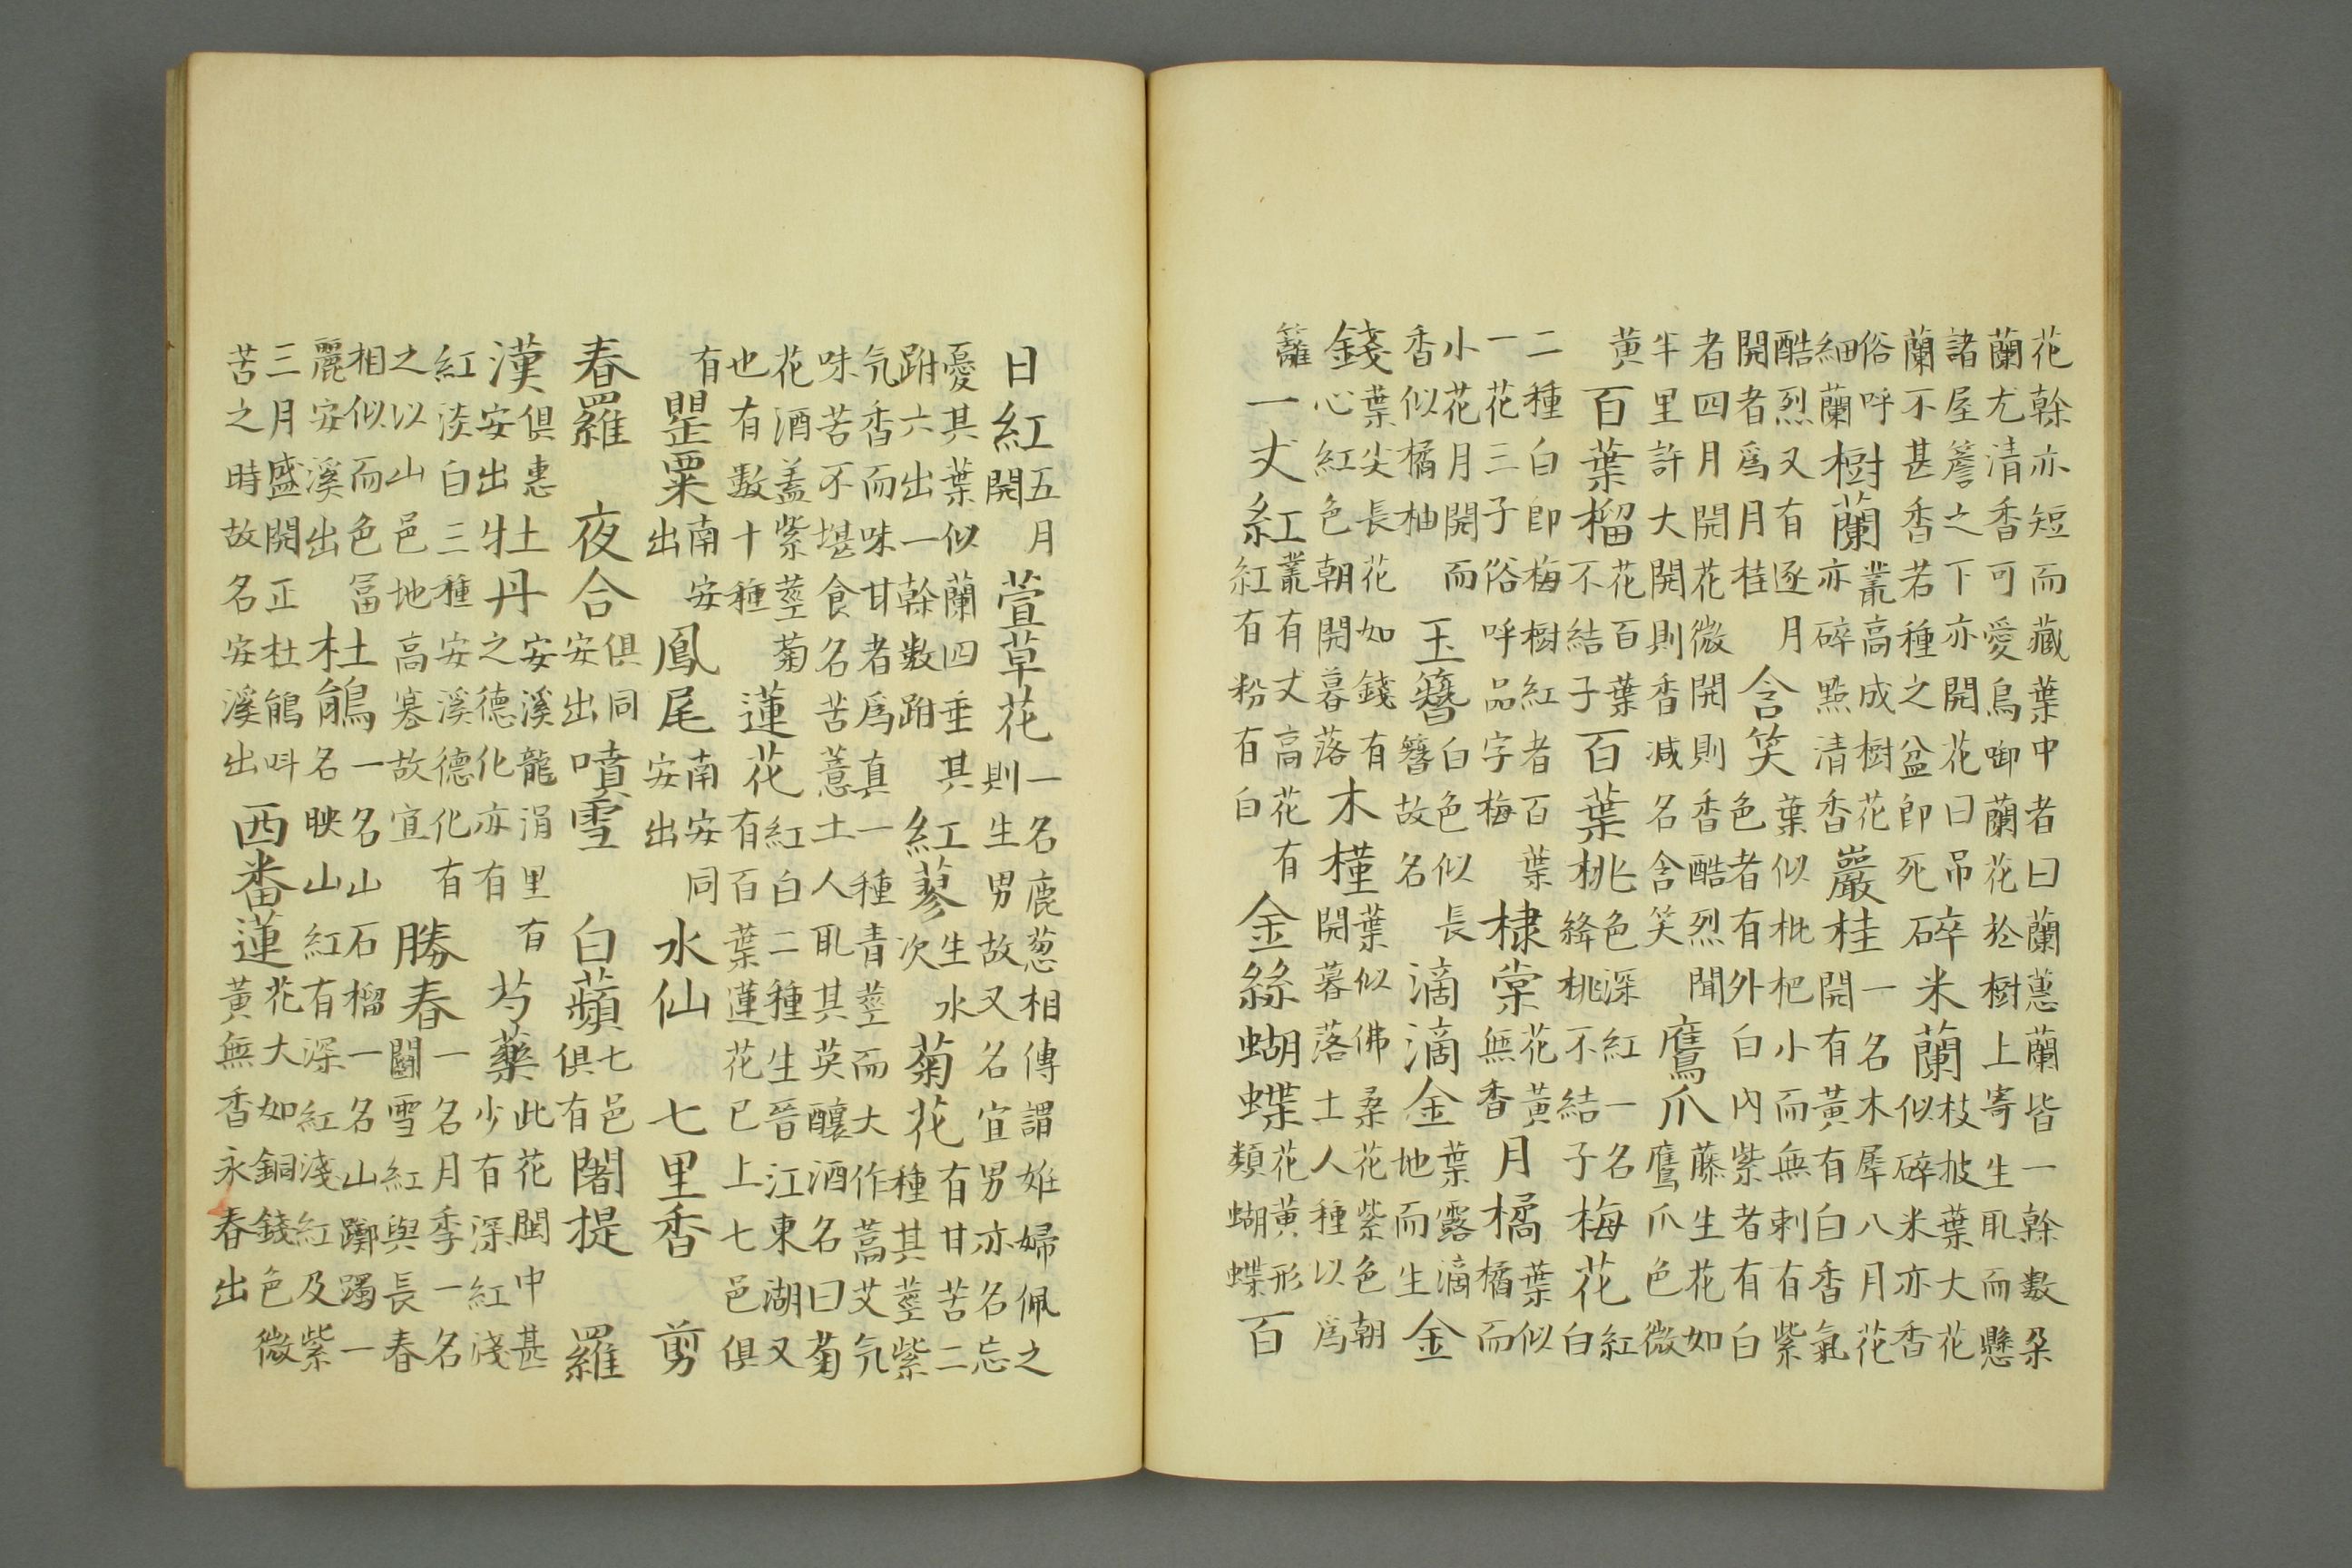 花幹亦短而藏葉中者曰蘭蕙蘭皆一幹數朵
蘭尤清香可愛烏啣蘭花於樹上寄生取而懸
諸屋簷之下亦開花曰吊
蘭不甚香若種之盆即死
碎米蘭
枝披葉大花
似碎米亦香
俗呼
細蘭
樹蘭
叢高成樹花
亦碎點清香
巖桂
一名木犀八月花
開有黃有白香氣
酷烈又有逐月
開者爲月桂
含笑
葉似枇杷小而無刺有紫
色者有外白內紫者有白
者四月開花微開則香酷烈聞
半里許大開則香減名含笑
鷹爪
藤生花如
鷹爪色微
黃
百葉榴
花百葉
不結子
百葉桃
色深紅一名
絳桃不結子
梅花
紅
白
二種白即梅樹紅者百葉
一花三子俗呼品字梅
棣棠
花黃
無香
月橘
葉似
橘而
小花月月開而
香似橘柚
玉簪
白色似長
簪故名
滴滴金
葉露滴
地而生
金
錢
葉尖長花如錢有
心紅色朝開暮落
木槿
葉似佛桑花紫色朝
開暮落土人種以爲
籬
一丈紅
叢有丈高花有
紅有粉有白
金絲蝴蝶
花黃形
類蝴蝶
百
日紅
五月
開
萱草花
一名鹿葱相傳謂姙婦佩之
則生男故又名宜男亦名忘
憂其葉似蘭四垂其
跗六出一幹數跗
紅蓼
生水
次
菊花
有甘苦二
種其莖紫
气香而味甘者爲真一種青莖而大作蒿艾气
味苦不堪食名苦薏土人取其英釀酒名曰菊
花酒盖紫莖菊
也有數十種
蓮花
紅白二種生晉江東湖又
有百葉蓮花已上七邑俱
有
罌粟
南安
出
鳳尾
南安同
安出
水仙
七里香
剪
春羅
夜合
俱同
安出
噴雪
白蘋
七邑
俱有
闍提
羅
漢
俱惠
安出
牡丹
安溪龍涓里有
之德化亦有
芍藥
此花閩中甚
少有深紅淺
紅淡白三種安溪德化有
之以山邑地高寒故宜
勝春
一名月季一名
鬬雪紅與長春
相似而色冨
麗安溪出
杜鵑
一名山石榴一名山躑躅一
名映山紅有深紅淺紅及紫
三月盛開正杜鵑呌
苦之時故名安溪出
西番蓮
花大如銅錢色微
黃無香永春出